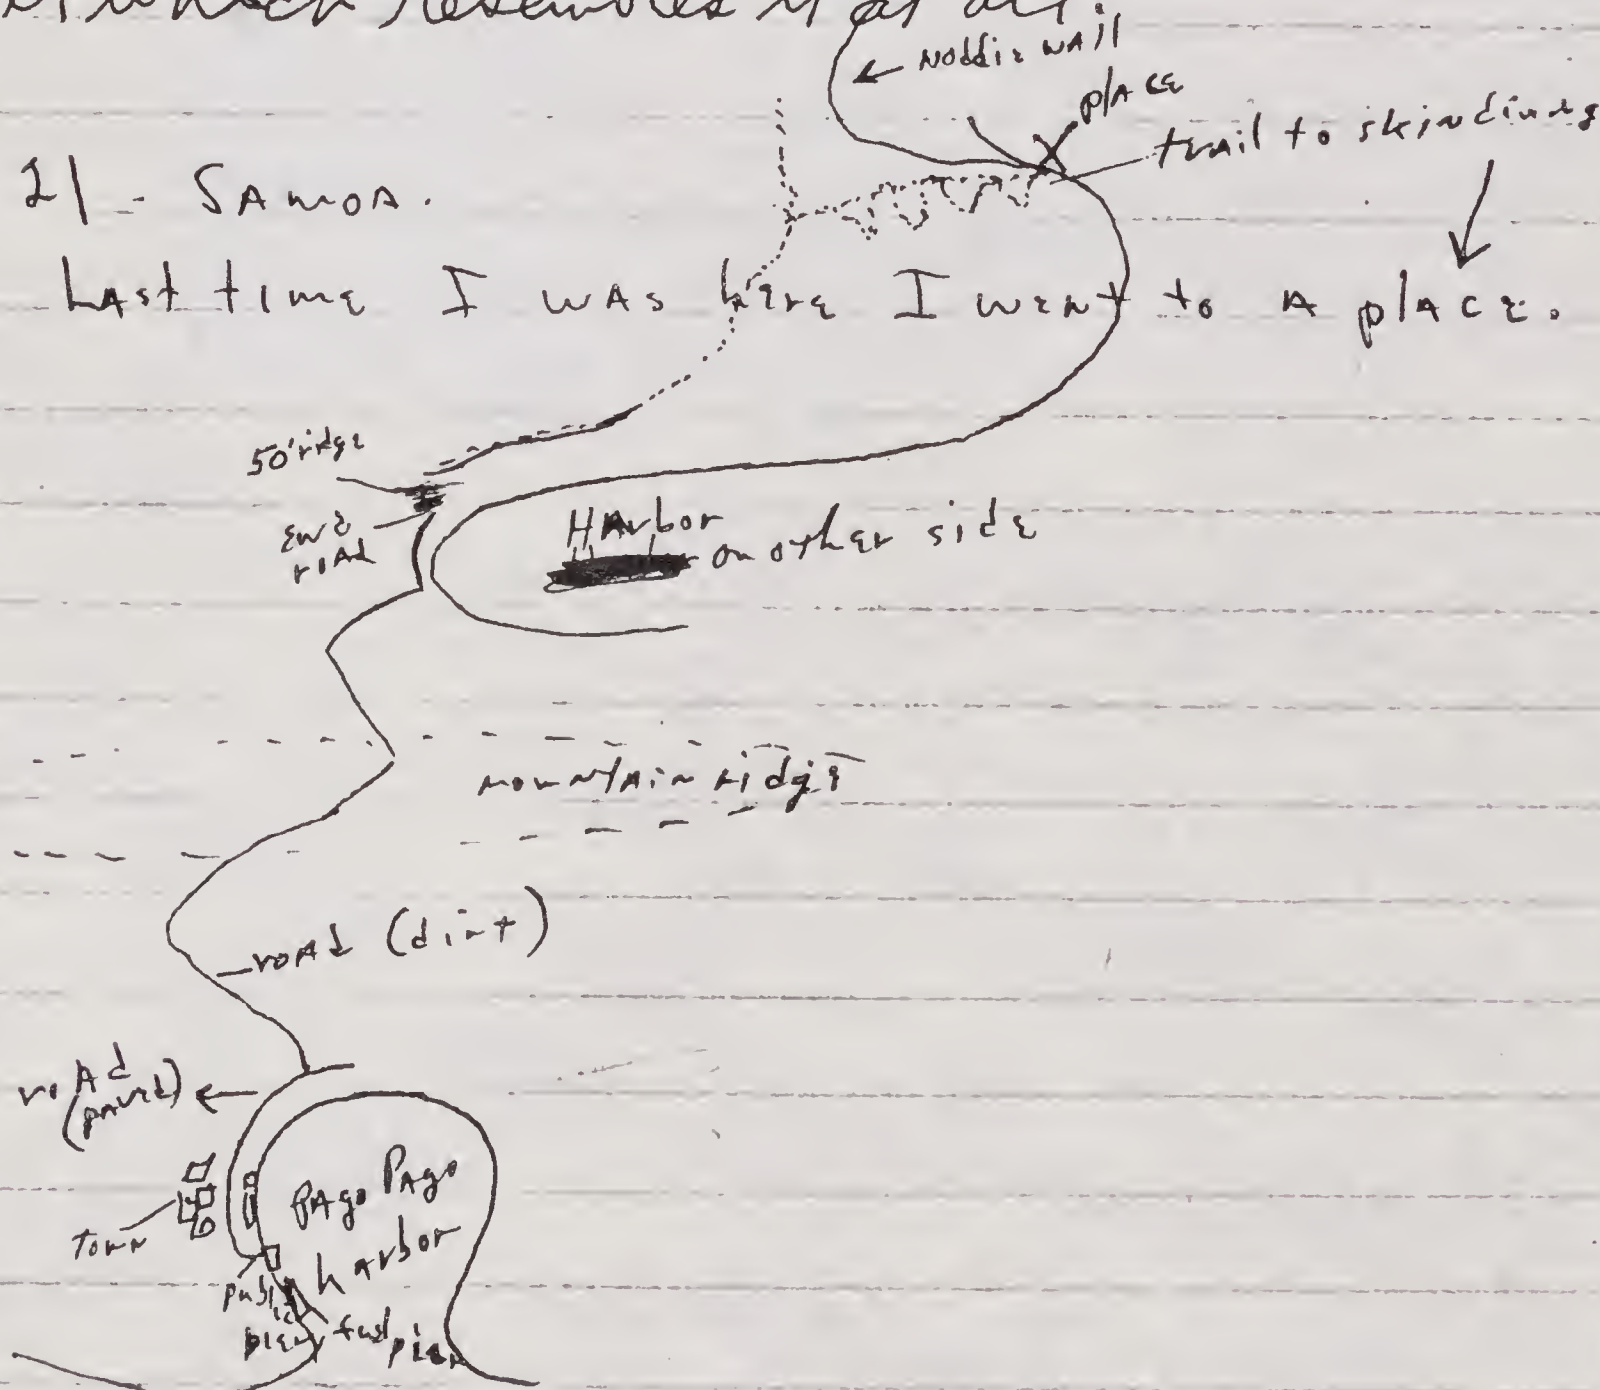 which resembles it at all.
← Noddie wall
place
trail to skindiving
21 - SAMOA.
Last time I was here I went to a place.
50' ridge
end
road
Harbor
on other side
mountain ridge
road (dirt)
road
(paved)
Pago Pago
harbor
Town
public
pier
fuel pier